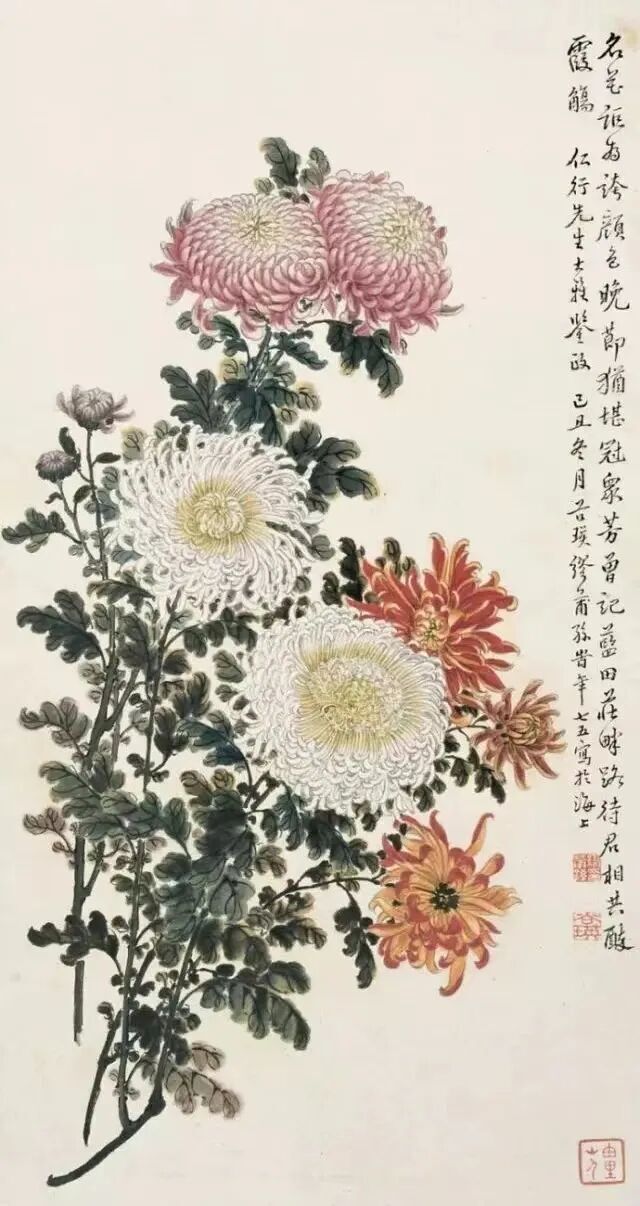 名花詎為誇顏色晚節猶堪冠衆芳曾記藍田莊畔路待君相共醉
霞觴　仁行先生大雅鑒政　己丑冬月呂璞繆甫孫時年七五寫於海上